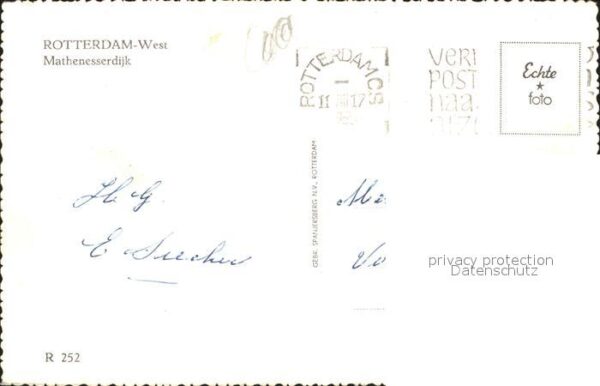 ROTTERDAM-West
Mathenesserdijk
ROTTERDAM CS
11 17
VERT
POST
naa
Echte
★
foto
GEBR. SPANJERSBERG N.V., ROTTERDAM
H. G.
E
Vo
privacy protection
Datenschutz
R 252